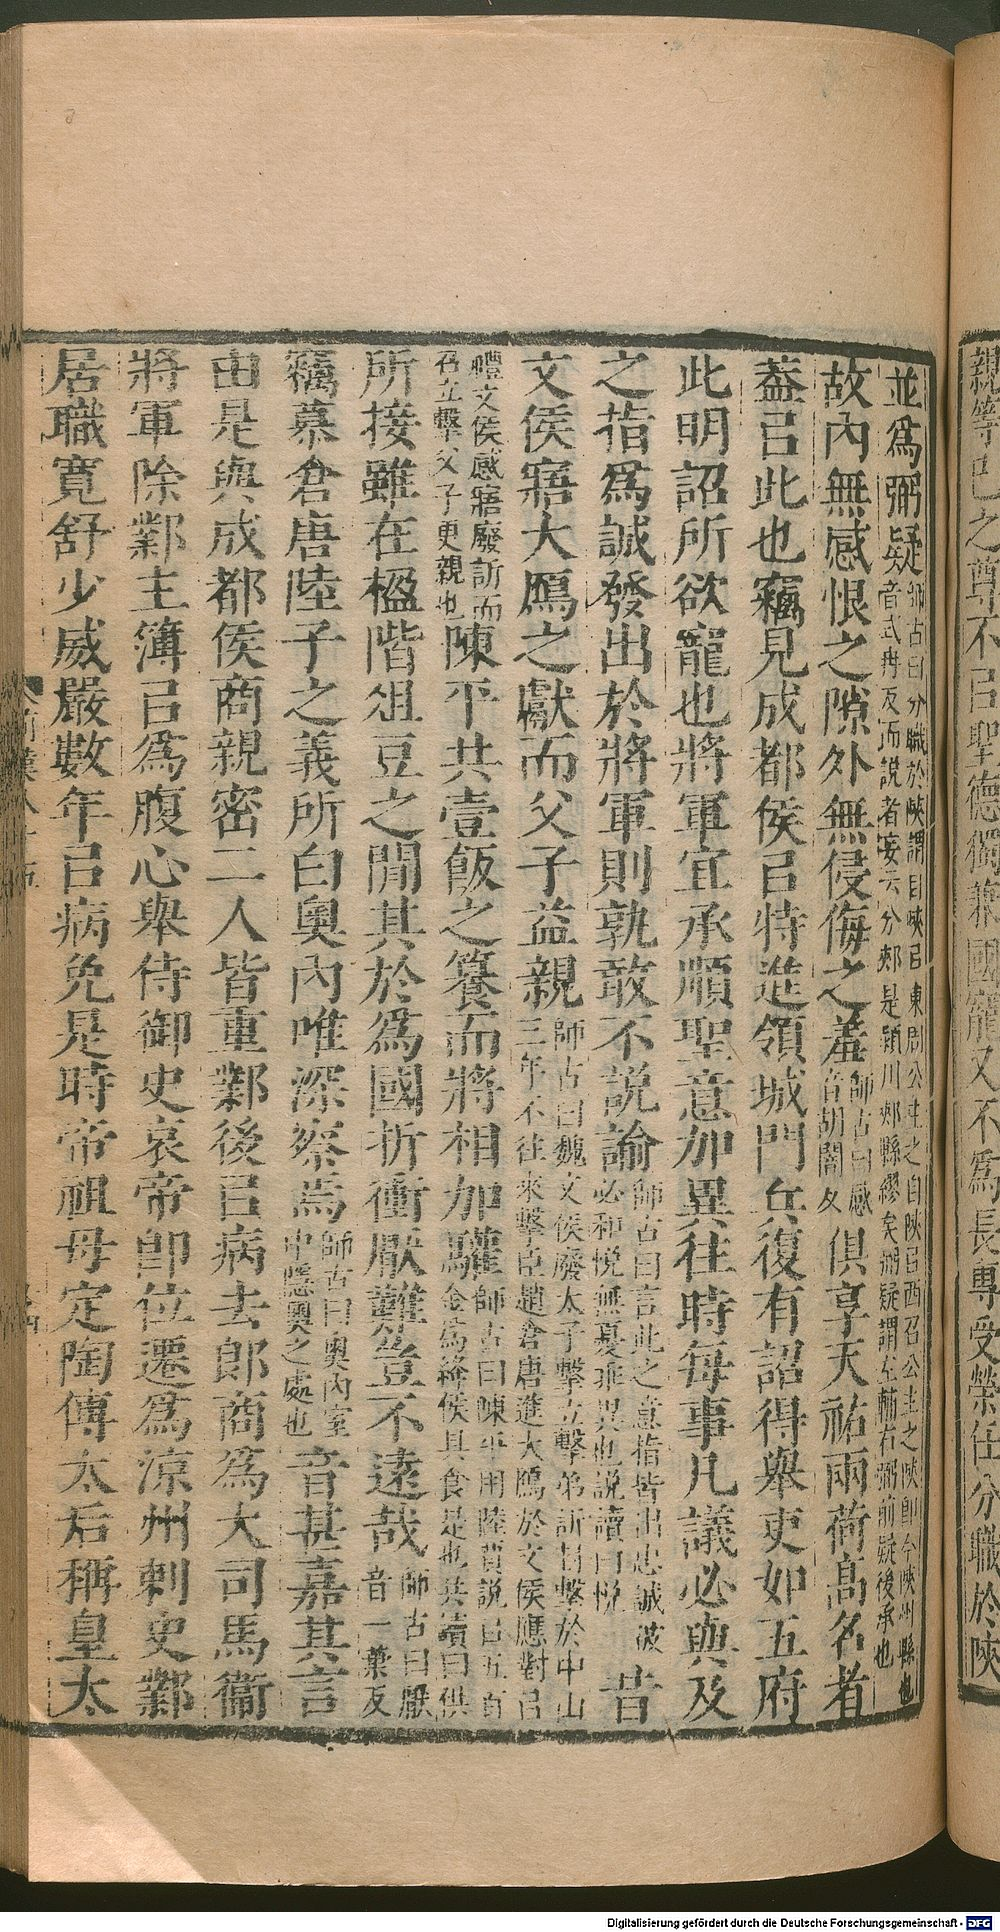 親等已之尊不㠯聖德獨兼國寵又不爲長專受榮任分職於陝
並爲弼疑師古曰分職於陝謂自陝㠯東周公主之自陝㠯西召公主之陝即今陝州縣也
音式冉反而說者妄云分郟是潁川郟縣繆矣弼疑謂左輔右弼前疑後承也
故內無感恨之隙外無侵侮之羞師古曰感音胡闇反俱享天祐兩荷高名者
蓋㠯此也竊見成都侯㠯特進領城門兵復有詔得舉吏如五府
此明詔所欲寵也將軍宜承順聖意加異往時每事凡議必與及
之指爲誠發出於將軍則孰敢不說諭師古曰言此之意指皆出忠誠彼必和悅無憂乖異也說讀曰悅昔
文侯寤大鴈之獻而父子益親師古曰魏文侯廢太子擊立擊弟訢封擊於中山
三年不往來擊臣趙倉唐進大鴈於文侯應對㠯
禮文侯感寤廢訢而召立擊父子更親也陳平共壹飯之籑而將相加驩師古曰陳平用陸賈說㠯五百金爲絳侯具食是也共讀曰供
所接雖在楹階俎豆之閒其於爲國折衝厭難豈不遠哉師古曰厭音一葉反
竊慕倉唐陸子之義所白奧內唯深察焉師古曰奧內室中隱奧之處也音甚嘉其言
由是與成都侯商親密二人皆重鄴後㠯病去郎商爲大司馬衞
將軍除鄴主簿㠯爲腹心舉侍御史哀帝即位遷爲涼州刺史鄴
居職寬舒少威嚴數年㠯病免是時帝祖母定陶傅太后稱皇太
Digitalisierung gefördert durch die Deutsche Forschungsgemeinschaft - DFG